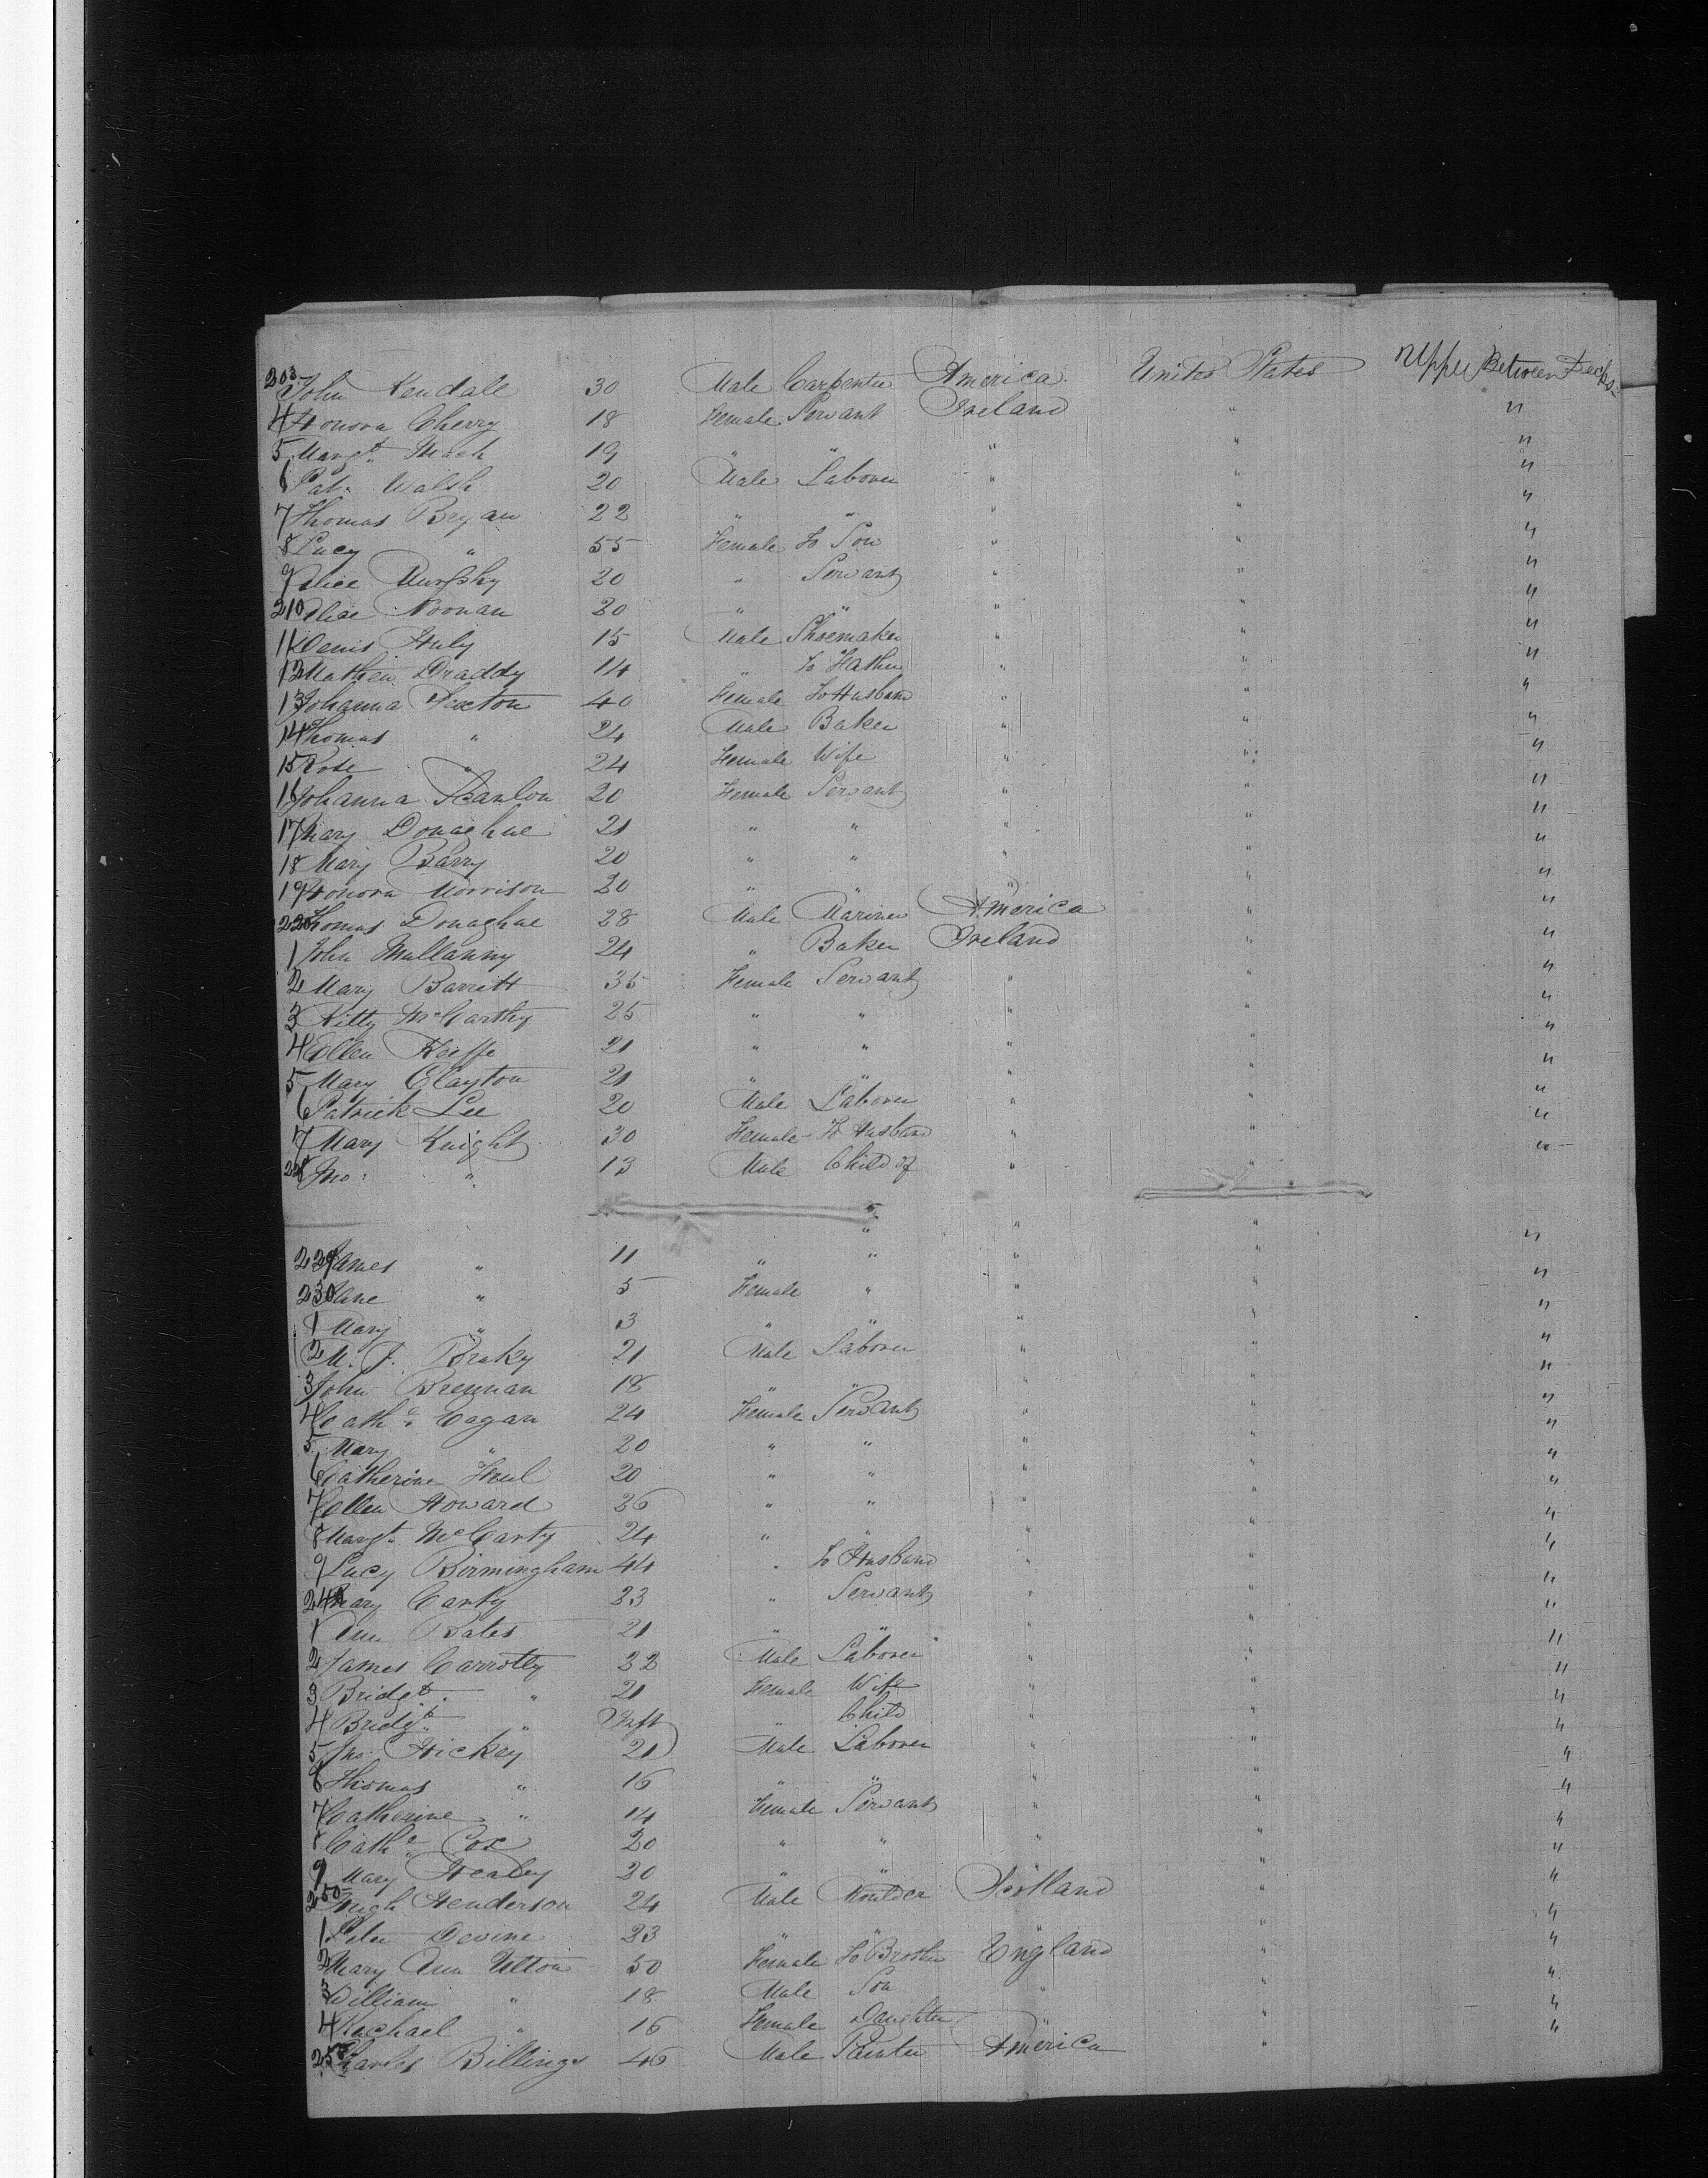 203 John Kendale 30 Male Carpenter America United States Upper Between Decks
4 Honora Cherry 18 Female Servant Ireland " "
5 Margt. Mack 19 " " " " "
6 Pat. Walsh 20 Male Laborer " " "
7 Thomas Bryan 22 " " " " "
8 Lucy " 55 Female to Son " " "
9 Alice Murphy 20 " Servant " " "
210 Alice Noonan 20 " " " " "
11 Denis Huly 15 Male Shoemaker " " "
12 Mathew Draddy 14 " to Father " " "
13 Johanna Sexton 40 Female to Husband " " "
14 Thomas " 24 Male Baker " " "
15 Rose " 24 Female Wife " " "
16 Johanna Scanlon 20 Female Servant " " "
17 Mary Donaghue 21 " " " " "
18 Mary Barry 20 " " " " "
19 Honora Morrison 20 " " " " "
220 Thomas Donaghue 28 Male Mariner America " "
1 John Mullanny 24 " Baker Ireland " "
2 Mary Barrett 35 Female Servant " " "
3 Kitty McCarthy 25 " " " " "
4 Ellen Keiffe 21 " " " " "
5 Mary Clayton 21 " " " " "
6 Patrick Lee 20 Male Laborer " " "
7 Mary Knight 30 Female to Husband " " "
228 Jno: " 13 Male Child of " " "
229 James " 11 " " " " "
230 Jane " 5 Female " " " "
1 Mary " 3 " " " " "
2 M. J. Braky 21 Male Laborer " " "
3 John Brennan 18 " " " " "
4 Cathe. Cagan 24 Female Servant " " "
5 Mary " 20 " " " " "
6 Catherine 20 " " " " "
7 Ellen Howard 26 " " " " "
8 Margt. McCarty 24 " " " " "
9 Lucy Birmingham 44 " to Husband " " "
240 Mary Carty 23 " Servant " " "
1 Ann Bates 21 " " " " "
2 James Carrolly 22 Male Laborer " " "
3 Bridgt. " 21 Female Wife " " "
4 Bridgt. " Inft " Child " " "
5 Jno. Hickey 21 Male Laborer " " "
6 Thomas " 16 " " " " "
7 Catherine " 14 Female Servant " " "
8 Cathe. Cox 20 " " " " "
9 Mary Healey 30 " " " " "
250 Hugh Henderson 24 Male Moulder Scotland " "
1 Peter Devine 23 " " " " "
2 Mary Ann Ulton 50 Female to Brother England " "
3 William " 18 Male Son " " "
4 Rachael " 16 Female Daughter " " "
255 Charles Billings 46 Male Painter America " "